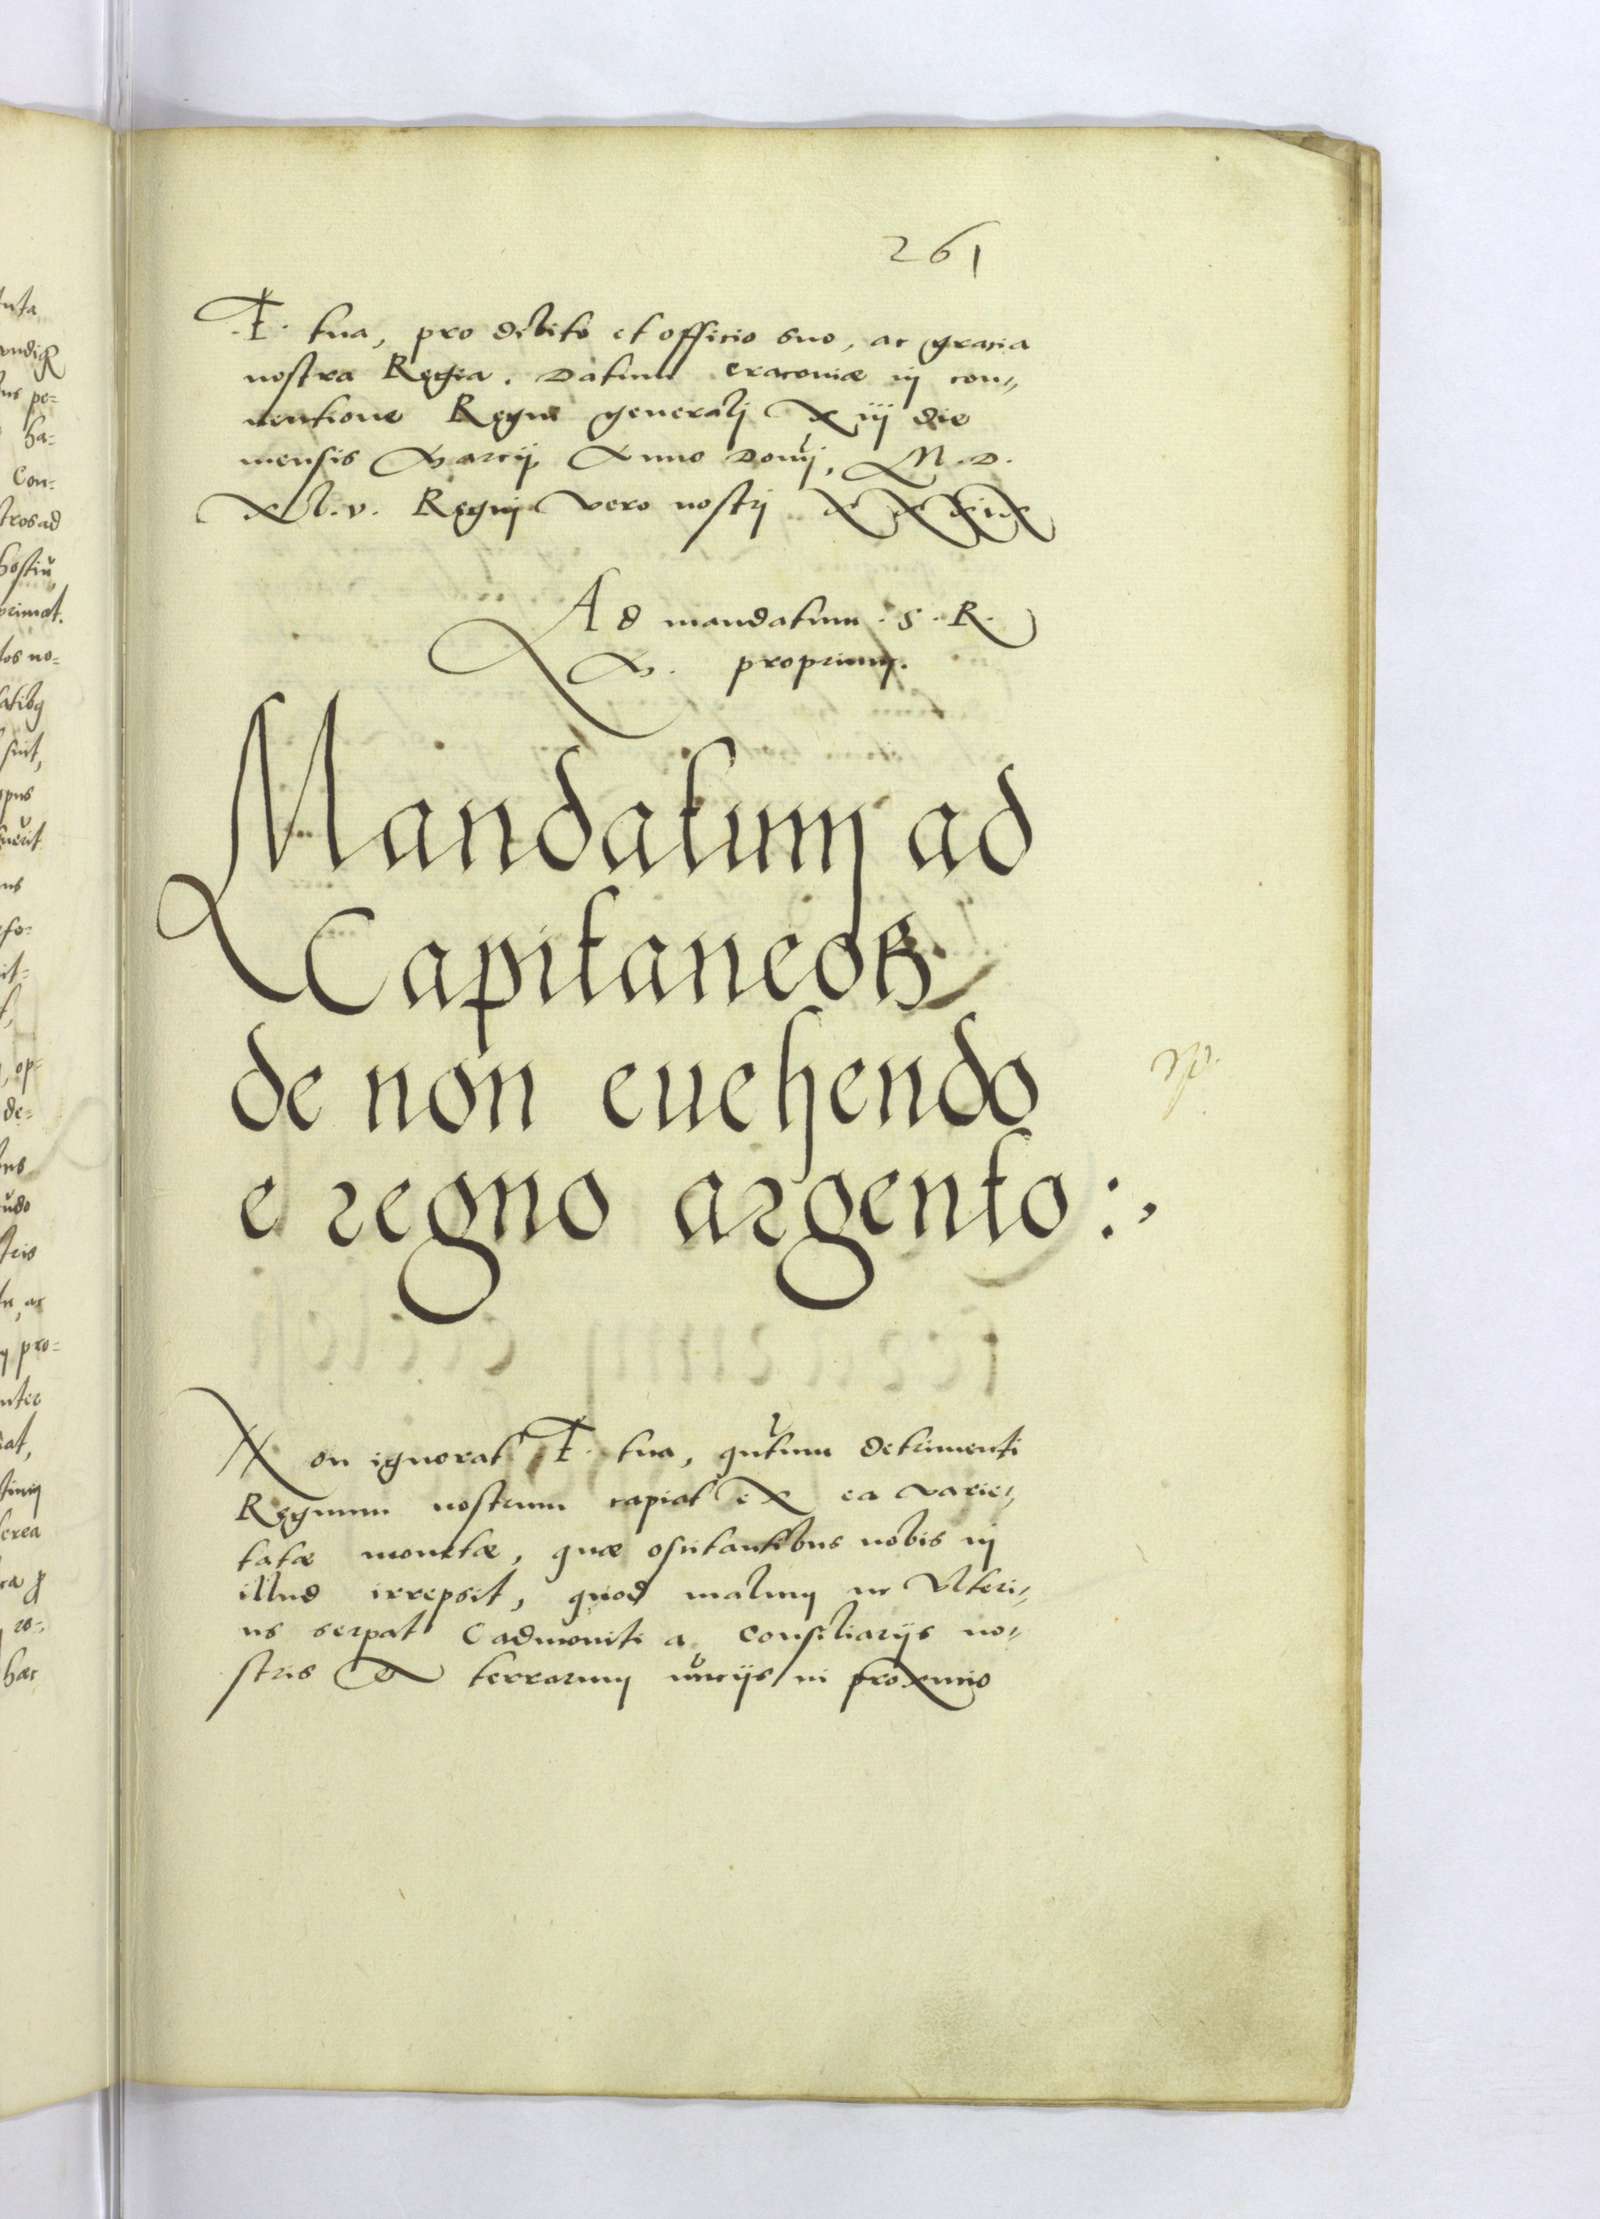 261
F. tua, pro debito et officio suo, ac gratia
nostra Regia. Datum Cracoviæ in con„
uentione Regni generalj X iij die
mensis Marcij Anno Domĩ, M.D.
XL.v. Regnj vero nostrj XXXiX
Ad mandatum .S.R.
M. proprium.
Mandatum ad
Capitaneos
de non euehendo
e regno argento:,
Non ignorat F. tua, qũtum detrimenti
Regnum nostrum capiat eX ea varie„
tatæ monetæ, quæ oscitantibus nobis in
illud irrepsit, quod malum ne Vlteri„
us serpat admoniti a Consiliarijs no„
stris & terrarum nũcijs in proXimio